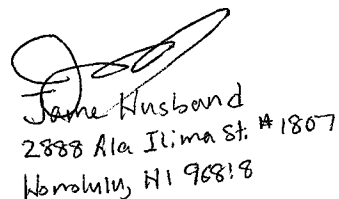 Jame Husband
2888 Ala Ilima St. #1807
Honolulu, HI 96818